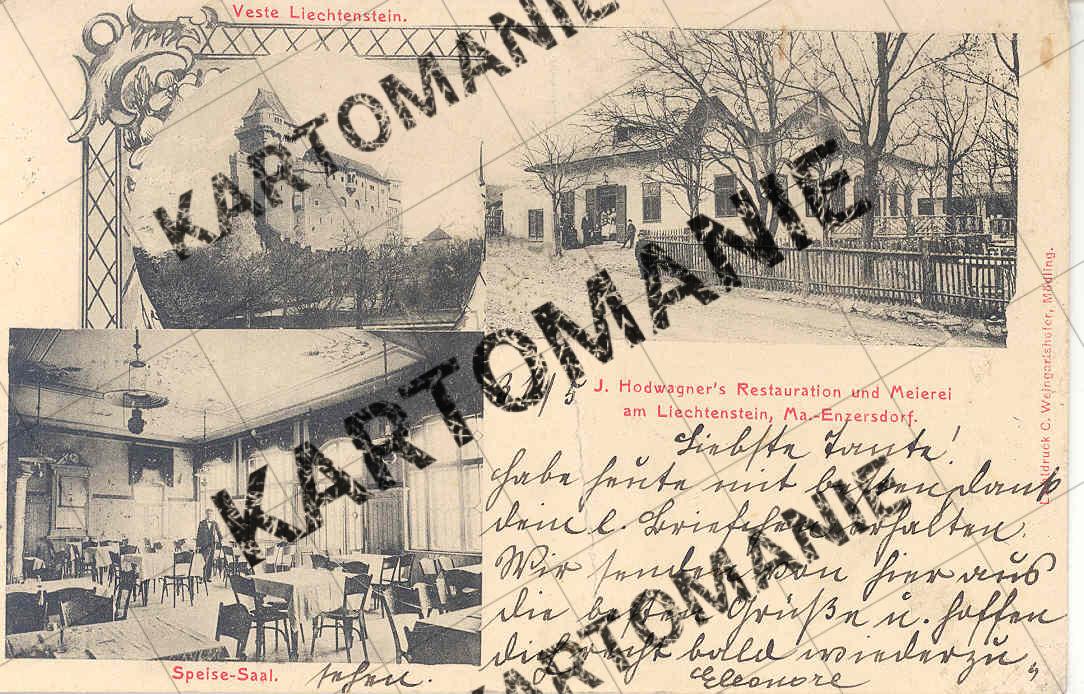 Veste Liechtenstein.
KARTOMANIE
KARTOMANIE
KARTOMANIE
KARTOMANIE
J. Hodwagner's Restauration und Meierei
am Liechtenstein, Ma.-Enzersdorf.
Lichtdruck C. Weingartshofer, Mödling.
31/5
Liebste Tante!
habe heute mit besten Dank
dein l. Briefchen erhalten.
Wir senden von hier aus
die besten Grüße u. hoffen
dich recht bald wiederzu
sehen.
Eleonore
Speise-Saal.